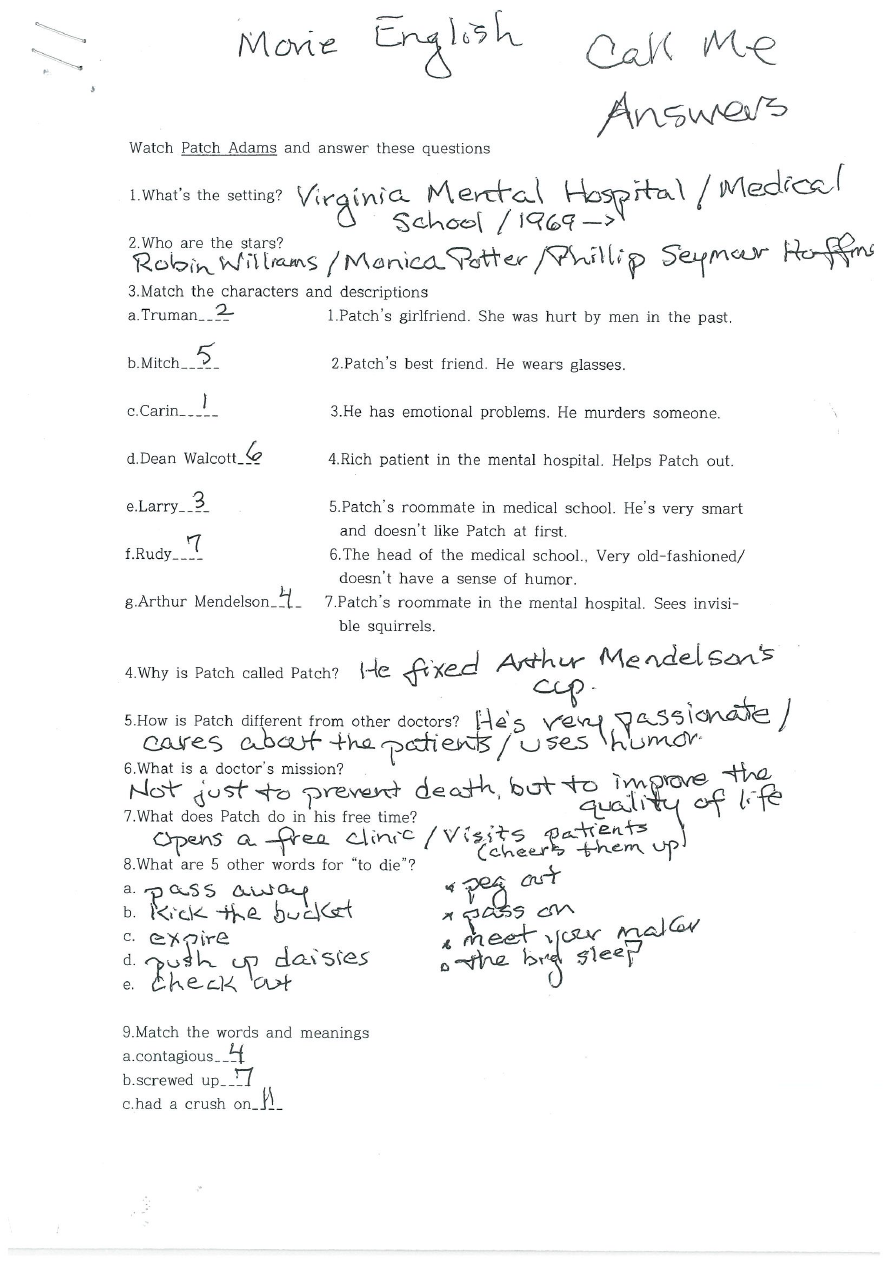 Movie English Call Me
Answers
Watch Patch Adams and answer these questions
1.What's the setting? Virginia Mental Hospital / Medical
School / 1969 ->
2.Who are the stars?
Robin Williams / Monica Potter / Phillip Seymour Hoffms
3.Match the characters and descriptions
a.Truman__2__ 1.Patch's girlfriend. She was hurt by men in the past.
b.Mitch__5___ 2.Patch's best friend. He wears glasses.
c.Carin__1___ 3.He has emotional problems. He murders someone.
d.Dean Walcott_6_ 4.Rich patient in the mental hospital. Helps Patch out.
e.Larry__3__ 5.Patch's roommate in medical school. He's very smart
and doesn't like Patch at first.
f.Rudy__7__ 6.The head of the medical school., Very old-fashioned/
doesn't have a sense of humor.
g.Arthur Mendelson_4_ 7.Patch's roommate in the mental hospital. Sees invisi-
ble squirrels.
4.Why is Patch called Patch? He fixed Arthur Mendelson's
cup.
5.How is Patch different from other doctors? He's very passionate /
cares about the patients / uses humor.
6.What is a doctor's mission?
Not just to prevent death, but to improve the
quality of life
7.What does Patch do in his free time?
Opens a free clinic / Visits patients
(cheers them up)
8.What are 5 other words for "to die"?
a. pass away * peg out
b. Kick the bucket * pass on
c. expire * meet your maker
d. push up daisies * the big sleep
e. check out
9.Match the words and meanings
a.contagious__4
b.screwed up__7
c.had a crush on_11_